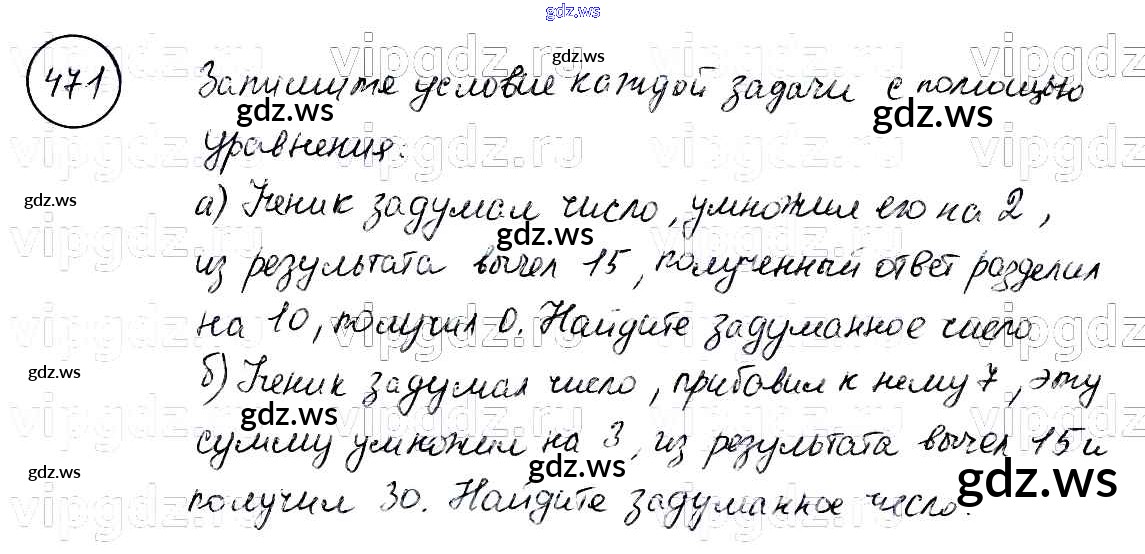 gdz.ws
471
Запишите условие каждой задачи с помощью
уравнения.
а) Ученик задумал число, умножил его на 2,
из результата вычел 15, полученный ответ разделил
на 10, получил 0. Найдите задуманное число
б) Ученик задумал число, прибавил к нему 7, эту
сумму умножил на 3, из результата вычел 15 и
получил 30. Найдите задуманное число.
vipgdz.ru
gdz.ws